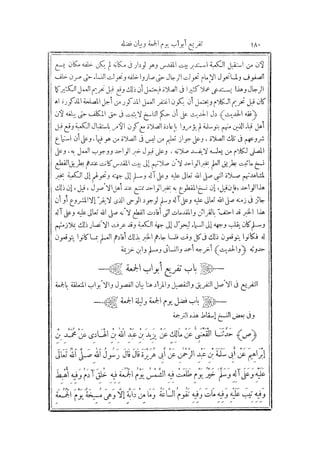 ١٨٠ تفريع أبواب يوم الجمعة وبيان فضله
لان من استقبل الكعبة استدبر بيت المقدس وهو لو دار فى مكانه لم يكن خلفه مكان يسع
الصفوف ولما تحول الإمام تحولت الرجال حتى صاروا خلفه وتحولت النساء حتى صرن خلف
الرجال وهذا يستدعى عملا كثيرا فى الصلاة فيحتمل أن ذلك وقع قبل تحريم العمل الكثير كما
كان قبل تحريم الكلام ويحتمل أن يكون اغتفر العمل المذكور من أجل المصلحة المذكورة اهـ
﴿فقه الحديث﴾ دل الحديث على أن حكم الناسخ لا يثبت فى حق المكلف حتى يبلغه لان
أهل قباء الذين منهم بنو سلمة لم يؤمروا بإعادة الصلاة مع كون الأمر باستقبال الكعبة وقع قبل
شروعهم فى تلك الصلاة. وعلى جواز تعليم من ليس فى الصلاة من هو فيها. وعلى أن استماع
المصلى لكلام من يعلمه لا يفسد صلاته. وعلى قبول خبر الواحد ووجوب العمل به. وعلى
نسخ ما ثبت بطريق العلم بخبر الواحد لأن صلاتهم إلى بيت المقدس كانت عندهم بطريق القطع
لمشاهدتهم صلاة النبى صلى الله تعالى عليه وعلى آله وسلم إلى جهته وتحولهم إلى الكعبة بخبر
هذا الواحد. فإن قيل، إن نسخ المقطوع به بخبر الواحد ممتنع عند أهل الأصول. قيل، إن ذلك
جائز فى زمنه صلى الله تعالى عليه وعلى آله وسلم لوجود الوحى الذى لا يقر إلا المشروع أو أن
هذا الخبر قد احتف بالقرائن والمقدمات التى أفادت القطع لأنه صلى الله تعالى عليه وعلى آله
وسلم كان يقلب وجهه إلى السماء ليحول إلى جهة الكعبة وقد عرفت الانصار ذلك بملازمتهم
له فكانوا يتوقعون ذلك فى كل وقت فلما جاءهم الخبر بذلك أفادهم العلم بما كانوا يتوقعون
حدوثه ﴿والحديث﴾ أخرجه أحمد والنسائى ومسلم وابن خزيمة
باب تفريع أبواب الجمعة
التفريع فى الأصل التفريق والتفصيل والمراد هنا بيان الفصول والأبواب المتعلقة بالجمعة
باب فضل يوم الجمعة وليلة الجمعة
وفى بعض النسخ إسقاط هذه الترجمة
﴿ص﴾ حَدَّثَنَا الْقَعْنَبِىُّ عَنْ مَالِكٍ عَنْ يَزِيدَ بْنِ عَبْدِ اللهِ بْنِ الْهَادِى عَنْ مُحَمَّدِ بْنِ
إِبْرَاهِيمَ عَنْ أَبِى سَلَمَةَ بْنِ عَبْدِ الرَّحْمٰنِ عَنْ أَبِى هُرَيْرَةَ قَالَ قَالَ رَسُولُ اللهِ صَلَّى اللهُ تَعَالَى
عَلَيْهِ وَعَلَى آلِهِ وَسَلَّمَ خَيْرُ يَوْمٍ طَلَعَتْ فِيهِ الشَّمْسُ يَوْمُ الْجُمُعَةِ فِيهِ خُلِقَ آدَمُ وَفِيهِ أُهْبِطَ
وَفِيهِ تِيبَ عَلَيْهِ وَفِيهِ مَاتَ وَفِيهِ تَقُومُ السَّاعَةُ وَمَا مِنْ دَابَّةٍ إِلَّا وَهِىَ مُسِيخَةٌ يَوْمَ الْجُمُعَةِ